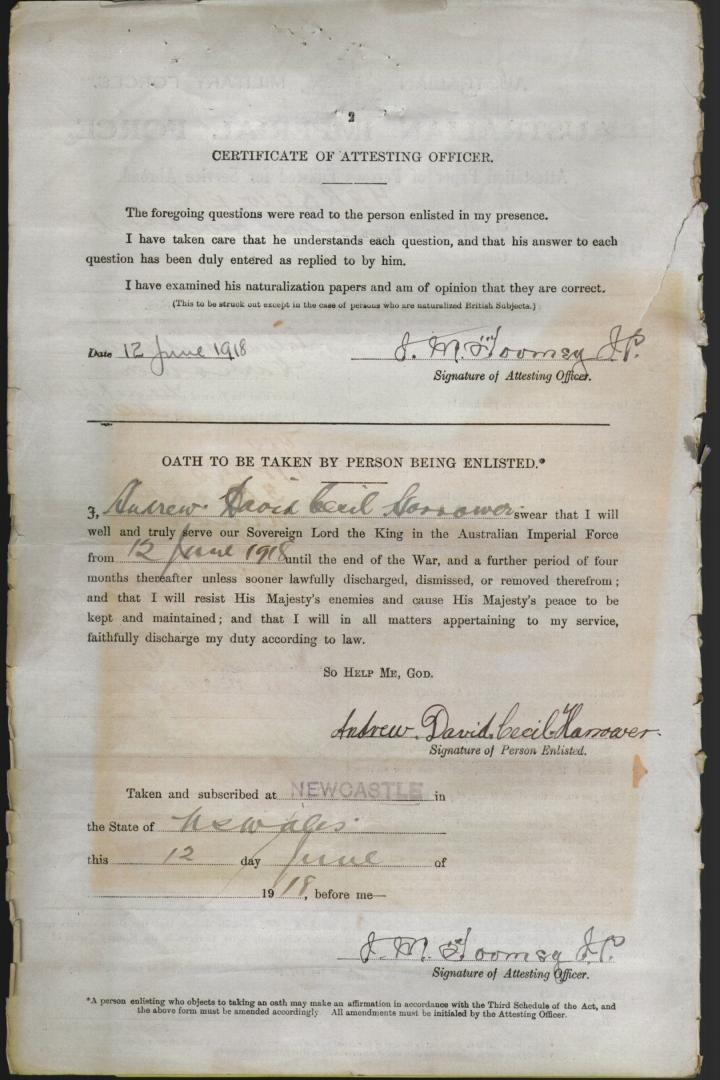 2
CERTIFICATE OF ATTESTING OFFICER.
The foregoing questions were read to the person enlisted in my presence.
I have taken care that he understands each question, and that his answer to each
question has been duly entered as replied to by him.
I have examined his naturalization papers and am of opinion that they are correct.
(This to be struck out except in the case of persons who are naturalized British Subjects.)
Date 12 June 1918 J. M. J.P.
Signature of Attesting Officer.
OATH TO BE TAKEN BY PERSON BEING ENLISTED.*
I, Andrew David Cecil Harrower swear that I will
well and truly serve our Sovereign Lord the King in the Australian Imperial Force
from 12 June 1918 until the end of the War, and a further period of four
months thereafter unless sooner lawfully discharged, dismissed, or removed therefrom;
and that I will resist His Majesty's enemies and cause His Majesty's peace to be
kept and maintained; and that I will in all matters appertaining to my service,
faithfully discharge my duty according to law.
So Help Me, God.
Andrew David Cecil Harrower
Signature of Person Enlisted.
Taken and subscribed at NEWCASTLE in
the State of NSWales
this 12 day June of
1918, before me—
J. M. J.P.
Signature of Attesting Officer.
*A person enlisting who objects to taking an oath may make an affirmation in accordance with the Third Schedule of the Act, and
the above form must be amended accordingly. All amendments must be initialed by the Attesting Officer.